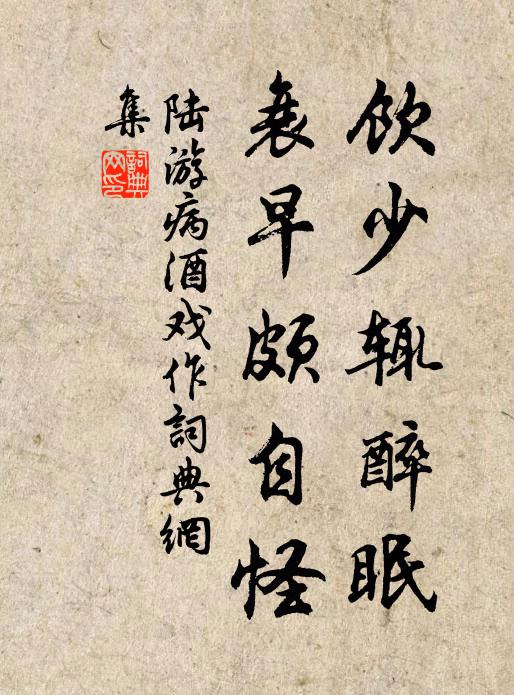 飲少辄醉眠
衰早頗自怪
陆游病酒戏作詞典網
集
詞典
网印